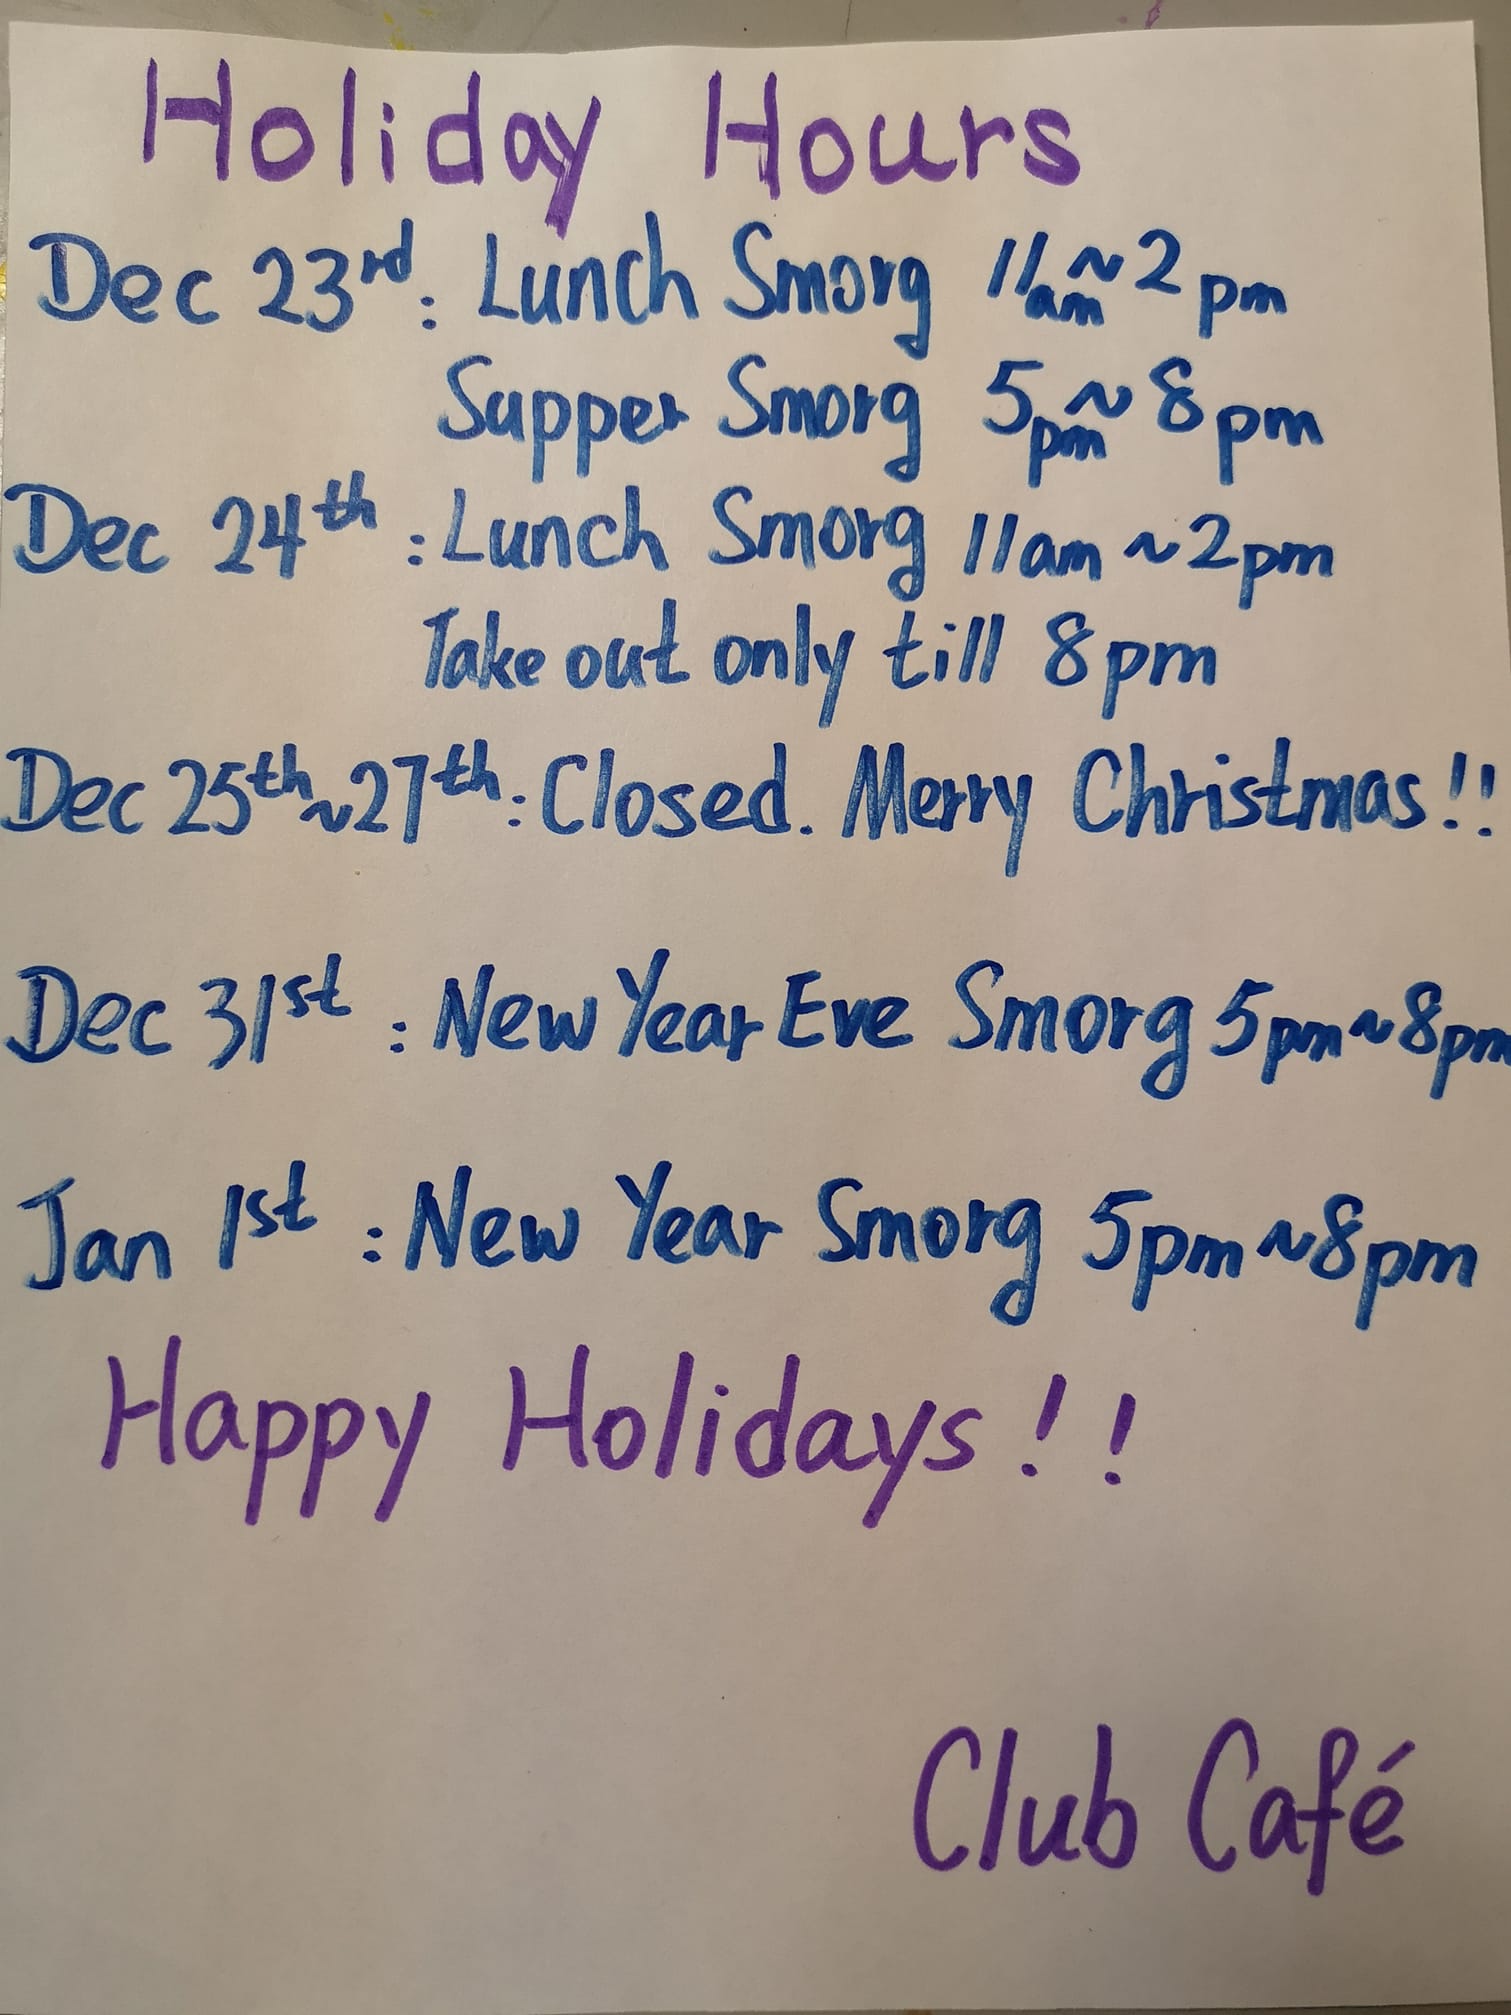 Holiday Hours
Dec 23rd: Lunch Smorg 11am~2pm
Supper Smorg 5pm~8pm
Dec 24th: Lunch Smorg 11am~2pm
Take out only till 8pm
Dec 25th~27th: Closed. Merry Christmas!!
Dec 31st: New Year Eve Smorg 5pm~8pm
Jan 1st: New Year Smorg 5pm~8pm
Happy Holidays!!
Club Café